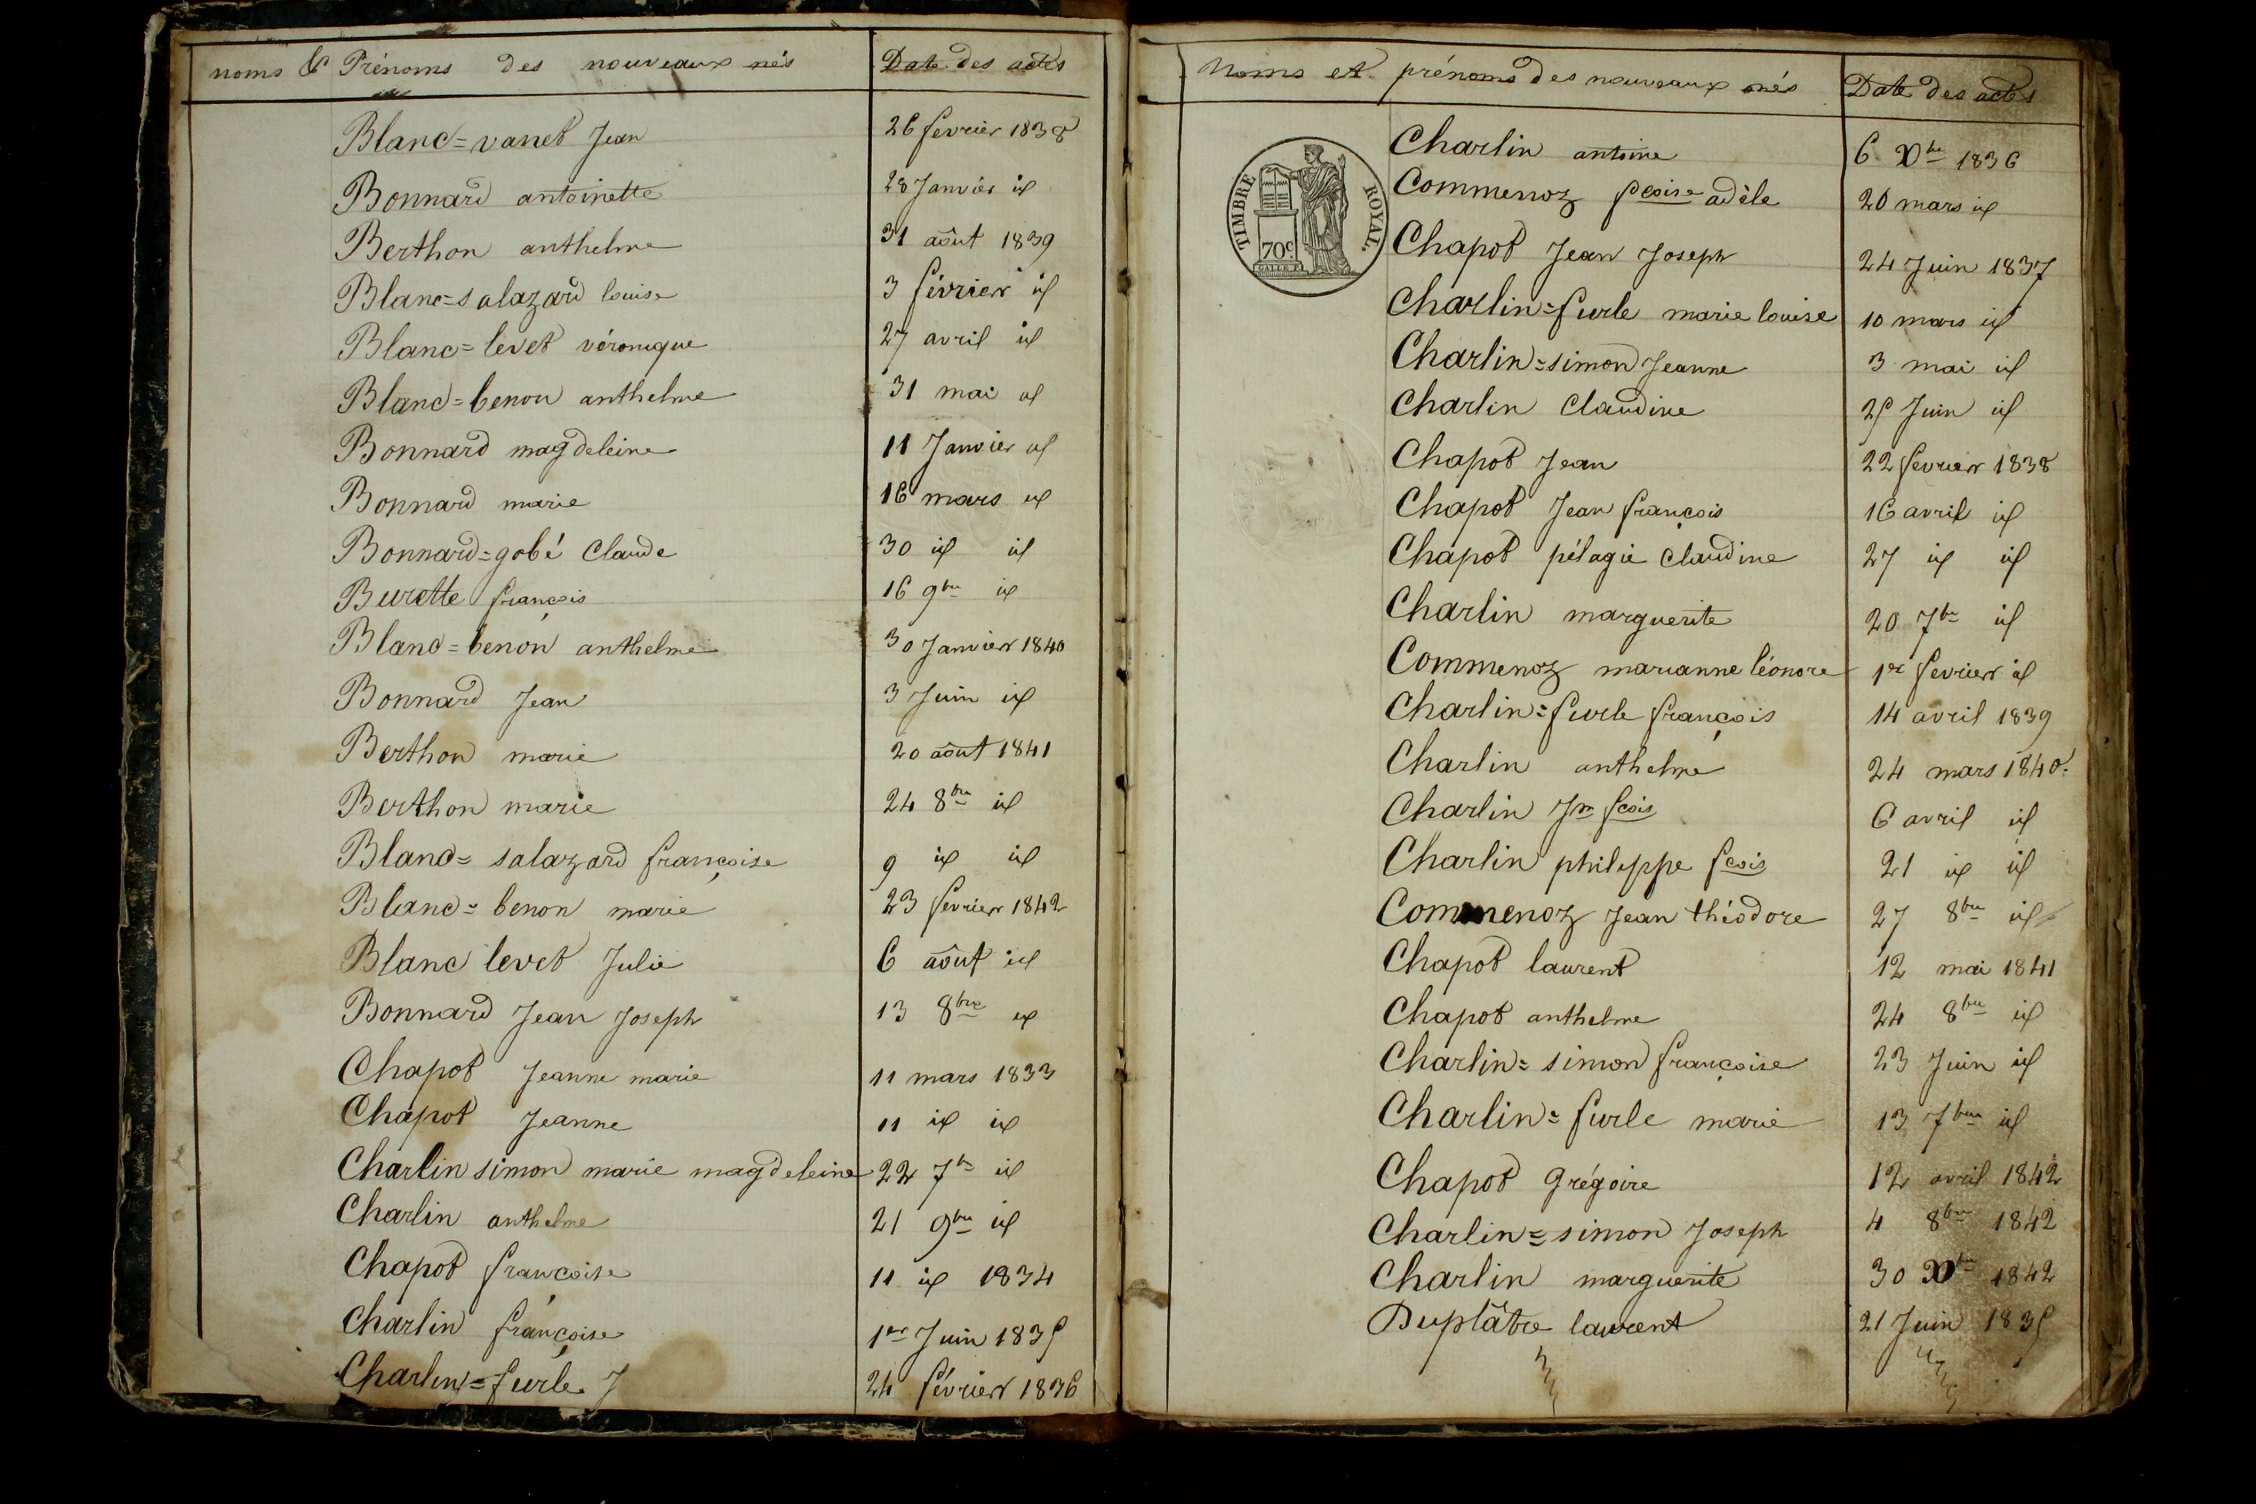 noms & Prénoms des nouveaux nés Date des actes
Blanc=vanet Jean 26 fevrier 1838
Bonnard antoinette 28 Janvier id
Berthon anthelme 31 aôut 1839
Blanc=salazard louise 3 février id
Blanc=levet véronique 27 avril id
Blanc=benon anthelme 31 mai id
Bonnard magdeleine 11 Janvier id
Bonnard marie 16 mars id
Bonnard=gobé Claude 30 id id
Burette françois 16 9bre id
Blanc=benon anthelme 30 Janvier 1840
Bonnard Jean 3 Juin id
Berthon marie 20 aôut 1841
Berthon marie 24 8bre id
Blanc=salazard françoise 9 id id
Blanc=benon marie 23 fevrier 1842
Blanc levet Julie 6 aôut id
Bonnard Jean Joseph 13 8bre id
Chapot Jeanne marie 11 mars 1833
Chapot Jeanne 11 id id
Charlin simon marie magdeleine 22 7bre id
Charlin anthelme 21 9bre id
Chapot françoise 11 id 1834
Charlin françoise 1er Juin 1835
Charlin=furle J 24 février 1836
Noms et prénoms des nouveaux nés Date des actes
TIMBRE ROYAL.
70c.
Charlin antoine 6 Xbre 1836
Commenoz fcoise adèle 20 mars id
Chapot Jean Joseph 24 Juin 1837
Charlin=furle marie louise 10 mars id
Charlin=simon Jeanne 3 mai id
Charlin Claudine 25 Juin id
Chapot Jean 22 fevrier 1838
Chapot Jean françois 16 avril id
Chapot pélagie Claudine 27 id id
Charlin marguerite 20 7bre id
Commenoz marianne léonore 1er fevrier id
Charlin=furle françois 14 avril 1839
Charlin anthelme 24 mars 1840.
Charlin Jn fcois 6 avril id
Charlin philippe fcois 21 id id
Commenoz Jean théodore 27 8bre id
Chapot laurent 12 mai 1841
Chapot anthelme 24 8bre id
Charlin=simon françoise 23 Juin id
Charlin=furle marie 13 7bre id
Chapot Grégoire 12 avril 1842
Charlin=simon Joseph 4 8bre 1842
Charlin marguerite 30 Xbre 1842
Duplâtre laurent 21 Juin 1835